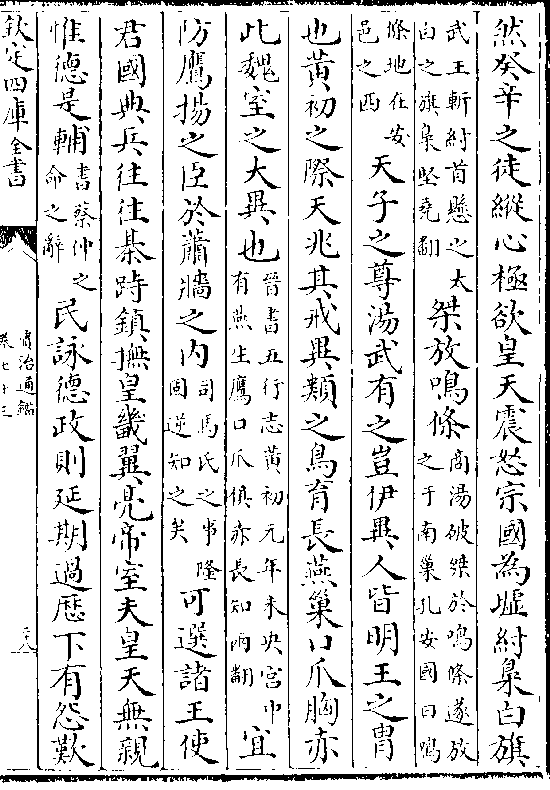 然癸辛之徒縱心極欲皇天震怒宗國為墟紂梟白旗
武王斬紂首懸之太白之旗梟堅堯翻桀放鳴條商湯破桀於鳴條遂放之于南巢孔安國曰鳴
條地在安邑之西天子之尊湯武有之豈伊異人皆明王之胄
也黃初之際天兆其戒異類之鳥育長燕巢口爪胸赤
此魏室之大異也晉書五行志黃初元年未央宮中有燕生鷹口爪俱赤長知兩翻宜
防鷹揚之臣於蕭牆之內司馬氏之事隆固逆知之矣可選諸王使
君國典兵往往棊跱鎮撫皇畿翼亮帝室夫皇天無親
惟德是輔書蔡仲之命之辭民詠德政則延期過歷下有怨歎
欽定四庫全書
資治通鑑
卷七十三